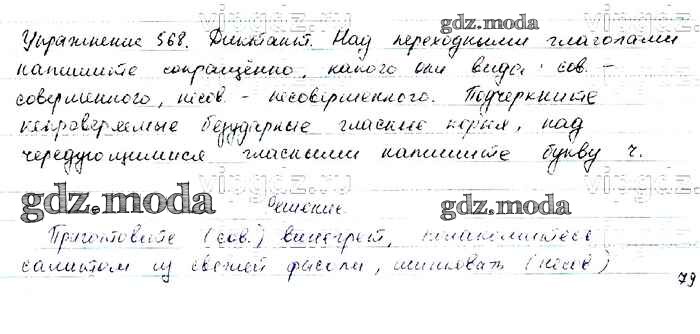 gdz.moda
Упражнение 568. Диктант. Над переходными глаголами
напишите сокращённо, какого они вида: сов. –
совершенного, несов. – несовершенного. Подчеркните
непроверяемые безударные гласные корня, над
чередующимися гласными напишите букву ч.
gdz.moda
gdz.moda
Решение.
Приготовьте (сов.) винегрет,
салатом из свежей фасоли, шинковать (несов)
79